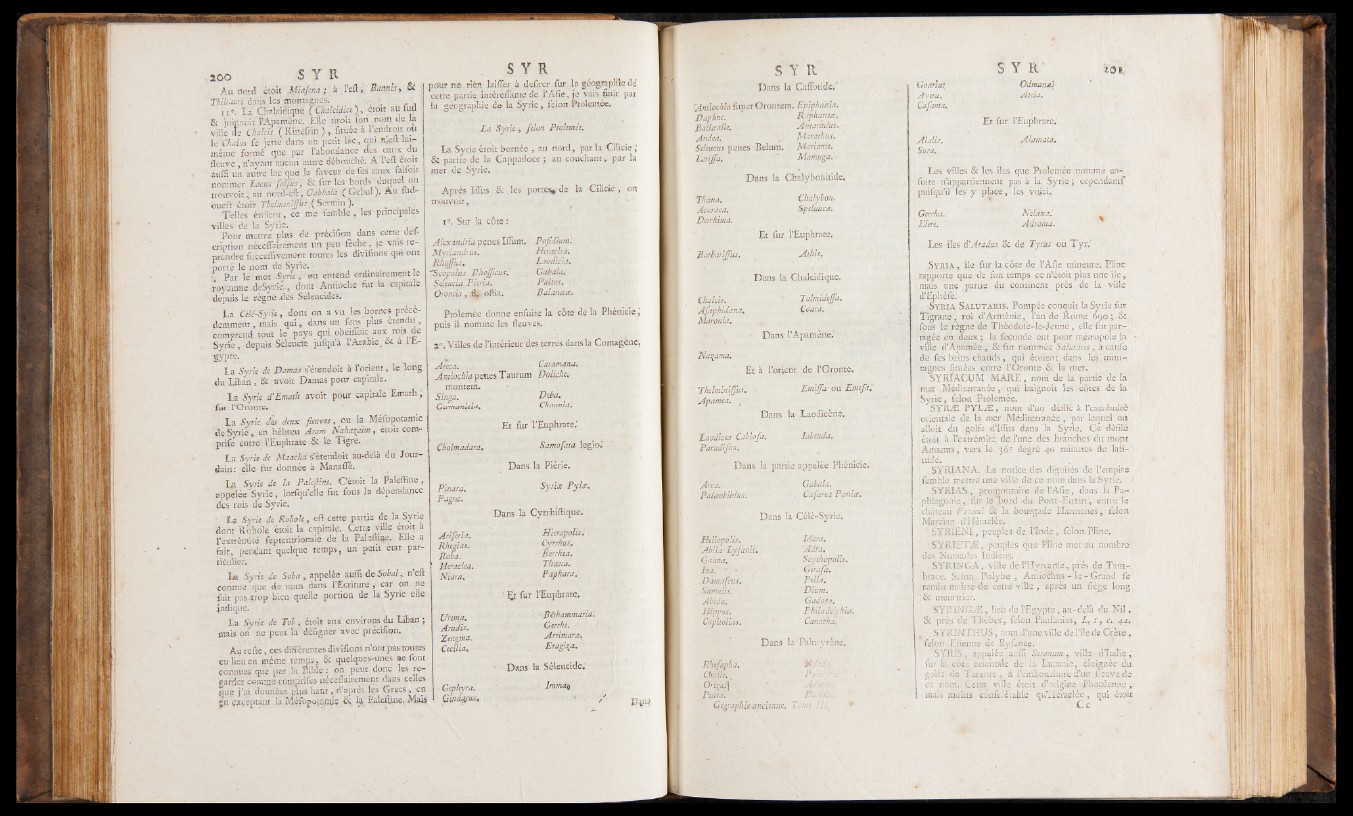 200 SYR
Au nord étoit Miasena ; à l'est, Bannis, &
Thelauri dans les montagnes.
11°. La Chalcidique (Chalcidice), étoit au sud
& joignoit l'Apamène. Elle tiroit son nom de la
ville de Chalcis (Kinésrin), située à l'endroit où
le Chalus se jette dans un petit lac, qui n'est lui-
même formé que par l'abondance des eaux du
fleuve, n'ayant aucun autre débouché. A l'est étoit
aussi un autre lac que la saveur de ses eaux faisoit
nommer Lacus salsus, & sur les bords duquel on
trouvoit, au nord-est, Gabbala (Gebul). Au sud-
ouest étoit Thelmenissus (Sermin).
Telles étoient, ce me semble, les principales
villes de la Syrie.
Pour mettre plus de précision dans cette des-
cription nécessairement un peu sèche, je vais re-
prendre successivement toutes les divisions qui ont
porté le nom de Syrie.
Par le mot Syrie, on entend ordinairement le
royaume de Syrie, dont Antioche fut la capitale
depuis le règne des Séleucides.
La Célé-Syrie, dont on a vu les bornes précé-
demment, mais qui, dans un sens plus étendu,
comprend tout le pays qui obéissoit aux rois de
Syrie, depuis Séleucie jusqu'à l'Arabie & à l'E-
gypte.
La Syrie de Damas s'étendoit à l'orient, le long
du Liban, & avoit Damas pour capitale.
La Syrie d'Emath avoit pour capitale Emath,
sur l'Oronte.
La Syrie des deux fleuves, ou la Mésopotamie
de Syrie, en hébreu Aram Naharaim, étoit com-
prise entre l'Euphrate & le Tigre.
La Syrie de Maacha s'étendoit au-delà du Jour-
dain : elle fut donnée à Manassé.
La Syrie de la Palestine. C'étoit la Palestine,
appelée Syrie, lorsqu'elle fut sous la dépendance
des rois de Syrie.
La Syrie de Rohole, est cette partie de la Syrie
dont Rohole étoit la capitale. Cette ville étoit à
l'extrémité septentrionale de la Palestine. Elle a
fait, pendant quelque temps, un petit état par-
ticulier.
La Syrie de Soba, appelée aussi de Sobal, n'est
connue que de nom dans l'Ecriture, car on ne
fait pas trop bien quelle portion de la Syrie elle
indique.
La Syrie de Tob, étoit aux environs du Liban ;
mais on ne peut la désigner avec précision.
Au reste, ces différentes divisions n'ont pas toutes
eu lieu en même temps, & quelques-unes ne sont
connues que par la Bible : on peut donc les re-
garder comme comprises nécessairement dans celles
que j'ai données plus haut, d'après les Grecs, en
en exceptant la Mésopotamie & la Palestine. Mais
SYR
pour ne rien laisser à desirer sur la géographie de
cette partie intéressante de l'Asie, je vais finir par
la géographie de la Syrie, selon Ptolemée.
La Syrie, selon Ptolemée.
La Syrie étoit bornée, au nord, par la Cilicie,
& partie de la Cappadoce ; au couchant, par la
mer de Syrie.
Après Issus & les portes de la Cilicie, on
trouvoit,
1°. Sur la côte :
Alexandria penes Issum. Posidium.
Myriandrus. Heraclea.
Rhossus. Laodicia.
Scopulus Rhossicus. Gabala.
Seleucia Pieria. Paltos.
Orontis, fl. ostia. Balanææ.
Ptolemée donne ensuite la côte de la Phénicie,
puis il nomme les fleuves.
2°. Villes de l'intérieur des terres dans la Comagène,
Areca. Casamana.
Antiochia penes Taurum Doliche.
montem.
Singa. Deba.
Germanicia. Chaonia.
Et sur l'Euphrate.
Cholmadara. Samosata legio.
Dans la Piérie.
Pinara. Syriæ Pylæ.
Pagræ.
Dans la Cyrrhistique.
Ariseria. Hierapolis.
Rhegias. Cyrrhus.
Ruba. Berrhea.
Heraclea. Thæna.
Niara. Paphara.
Et sur l'Euphrate,
Urema. Bethammaria.
Arudis. Gerrhe.
Zeugma. Arrimara.
Cecilia. Eragiza.
Dans la Séleucide.
Gephyra. Imma.
Gindarus.
SYR
Dans la Cassiotide.
Antiochia super Orontem. Epiphania.
Daphne. Raphanea.
Balleatle. Antaradeus.
Andea. Marathus.
Seleucus penes Belum. Mariame.
Larissa. Mamuga.
Dans la Chalybonitide.
Thema. Chalybon.
Acoraca. Spelunca.
Derrhima.
Et sur l'Euphrate.
Barbarissus. Athis.
Dans la Chalcidique.
Chalcis. Tolmidessa.
Asaphidama. Coara.
Maronia.
Dans l'Apamène.
Nazama.
Et à l'orient de l'Oronte.
Thelminissus. Emissa ou Emesa.
Apamea.
Dans la Laodicène.
Laodicea Cabiosa. Jabruda.
Paradisus.
Dans la partie appelée Phénicie.
Arca. Gabala.
Palæobiblus. Cæsarea Paniæ.
Dans la Célé-Syrie.
Heliopolis. Idara.
Abila Lysanii. Adra.
Gaana. Scythopolis.
Ina. Girasa.
Damascus. Pella.
Samulis. Dium.
Abida. Gadora.
Hippus. Philadelphia.
Capitolias. Canatha.
Dans la Palmyrène.
Rhesapha.
Cholle.
Oriza.
Putea.
Géographie ancienne. Tome III.
SYR 201
Goaria. Odmana.
Avera. Ateia.
Casama.
Et sur l'Euphrate,
Alalis. Alamata.
Sura.
Les villes & les îles que Ptolemée nomme en-
suite n'appartiennent pas à la Syrie ; cependant
puisqu'il les y place, les voici.
Gerrha. Nelaxa.
Elere. Adrama.
Les îles d'Aradus & de Tyrus ou Tyr.
SYRIA, île sur la côte de l'Asie mineure. Pline
rapporte que de son temps ce n'étoit plus une île,
mais une partie du continent près de la ville
d'Ephèse.
SYRIA SALUTARIS. Pompée conquit la Syrie sur
Tigrane, roi d'Arménie, l'an de Rome 690 ; &
sous le règne de Théodose-le-Jeune, elle fut par-
tagée en deux ; la seconde eut pour métropole la
ville d'Apamée, & fut nommée Salutaris, à cause
de ses bains chauds, qui étoient dans les mon-
tagnes situées entre l'Oronte & la mer.
SYRIACUM MARE, nom de la partie de la
mer Méditerranée, qui baignoit les côtes de la
Syrie, selon Ptolemée.
SYRIÆ PYLÆ, nom d'un défilé à l'extrémité
orientale de la mer Méditerranée, par lequel on
alloit du golfe d'Issus dans la Syrie. Ce défilé
étoit à l'extrémité de l'une des branches du mont
Amanus, vers le 36e degré 40 minutes de lati-
tude.
SYRIANA. La notice des dignités de l'empire
semble mettre une ville de ce nom dans la Syrie.
SYRIAS, promontoire de l'Asie, dans la Pa-
phlagonie, sur le bord du Pont-Euxin, entre le
château Potami & la bourgade Harmenes, selon
Marcian d'Héraclée.
SYRIENI, peuples de l'Inde, selon Pline.
SYRIETÆ, peuples que Pline met au nombre
des Nomades Indiens.
SYRINGA, ville de l'Hyrcanie, près de Tam-
brace. Selon Polybe, Antiochus-le-Grand se
rendit maître de cette ville, après un siège long
& meurtrier.
SYRINGÆ, lieu de l'Egypte, au-delà du Nil,
& près de Thèbes, selon Pausanias, L. 1, c. 42.
SYRINTHUS, nom d'une ville de l'île de Crète,
selon Etienne de Bysance.
SYRIS, appelée aussi Seianum, ville d'Italie,
sur la côte orientale de la Lucanie, éloignée du
golfe de Tarente, à l'embouchure d'un fleuve de
ce nom. Cette ville étoit d'origine Phocéenne,
mais moins considérable qu'Héraclée, qui étoit
C c